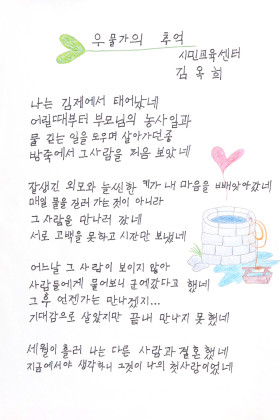 우물가의 추억
시민교육센터
김옥희
나는 김제에서 태어났네
어릴때부터 부모님의 농사일과
물 긷는 일을 도우며 살아가던중
밤죽에서 그사람을 처음 보았네
잘생긴 외모와 늘씬한 키가 내 마음을 빼앗아갔네
매일 물을 길러 가는 것이 아니라
그 사람을 만나러 갔네
서로 고백을 못하고 시간만 보냈네
어느날 그 사람이 보이지 않아
사람들에게 물어보니 군에갔다고 했네
그후 언젠가는 만나겠지...
기대감으로 살았지만 끝내 만나지 못했네
세월이 흘러 나는 다른 사람과 결혼했네
지금에서야 생각하니 그것이 나의 첫사랑이었네